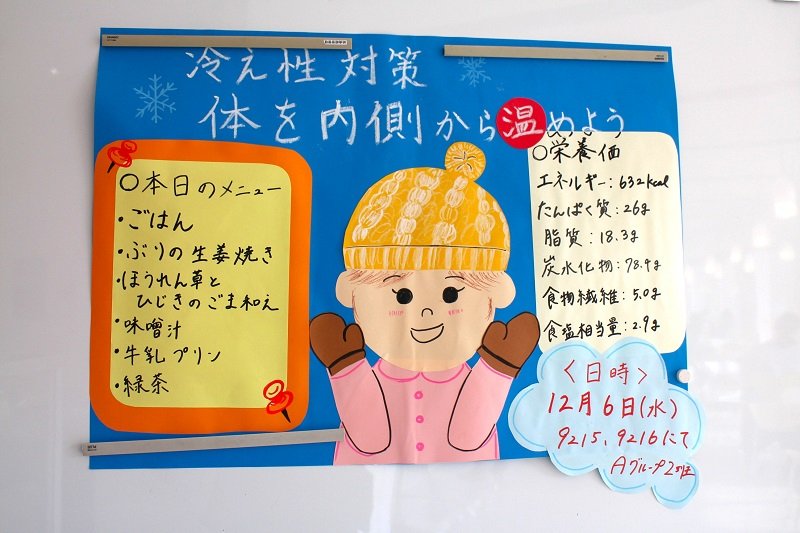 冷え性対策
体を内側から温めよう
○本日のメニュー
・ごはん
・ぶりの生姜焼き
・ほうれん草と
ひじきのごま和え
・味噌汁
・牛乳プリン
・緑茶
○栄養価
エネルギー：632kcal
たんぱく質：26g
脂質：18.3g
炭水化物：78.4g
食物繊維：5.0g
食塩相当量：2.9g
〈日時〉
12月6日(水)
9215、9216にて
Aグループ2班